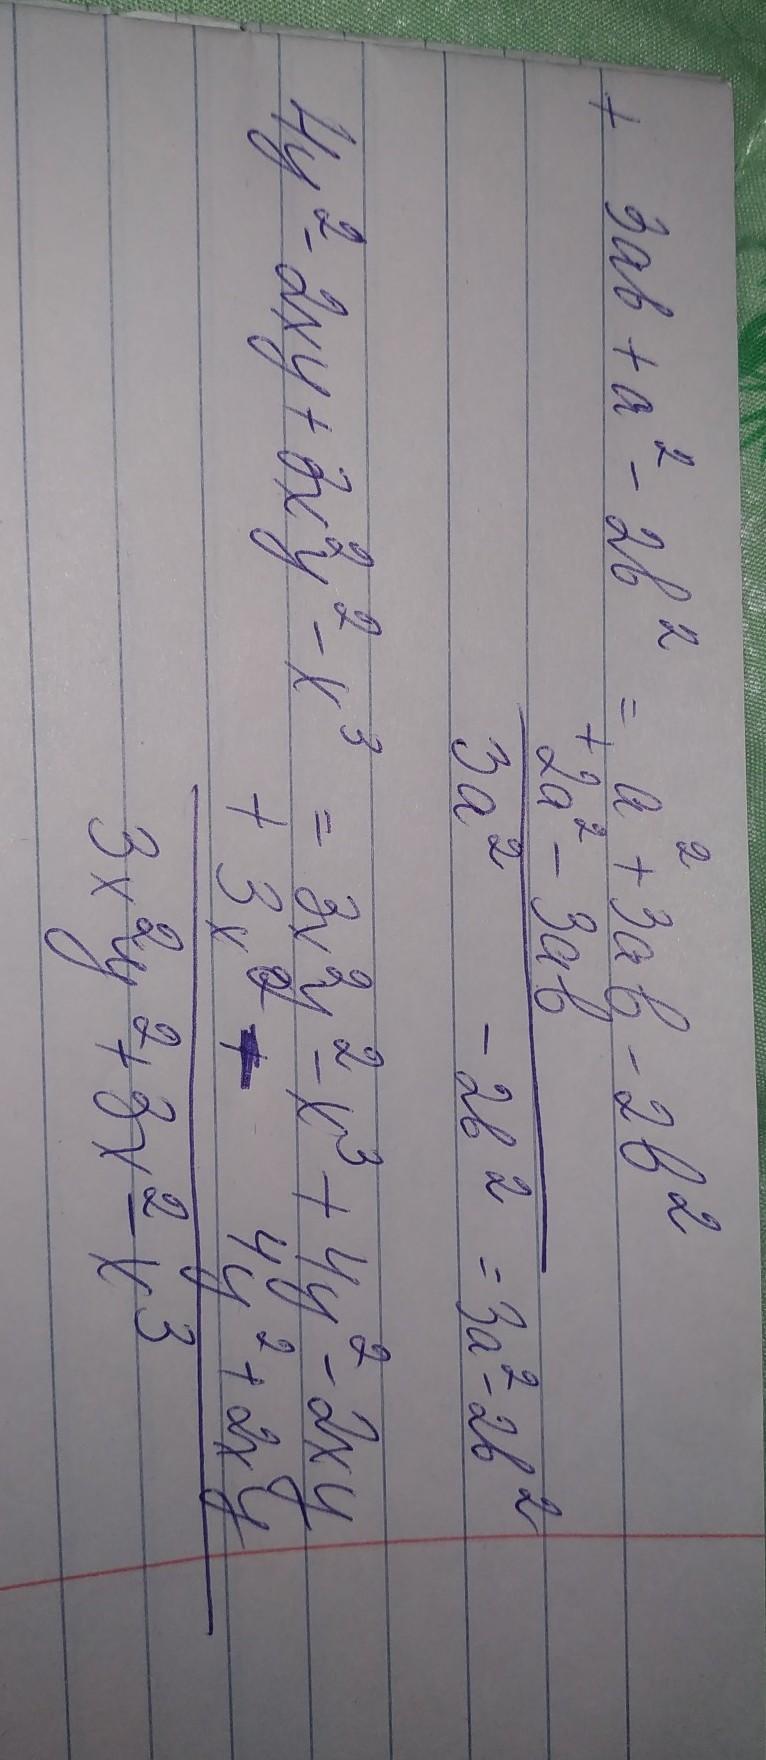 + 3ab + a² - 2b² = a² + 3ab - 2b²
+ 2a² - 3ab
3a² - 2b² = 3a² - 2b²
4y² - 2xy + 3x²y² - x³ = 3x²y² - x³ + 4y² - 2xy
+ 3x² 4y² + 2xy
3x²y² + 3x² - x³